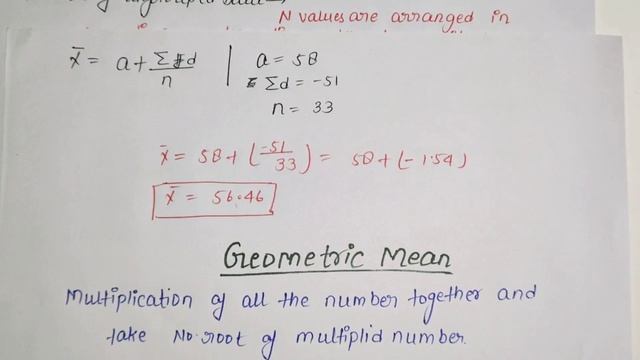 N values are arranged in
x̄ = a + Σd/n
a = 58
Σd = -51
n = 33
x̄ = 58 + (-51/33) = 58 + (-1.54)
x̄ = 56.46
Geometric Mean
Multiplication of all the number together and
take No. root of multiplid number.